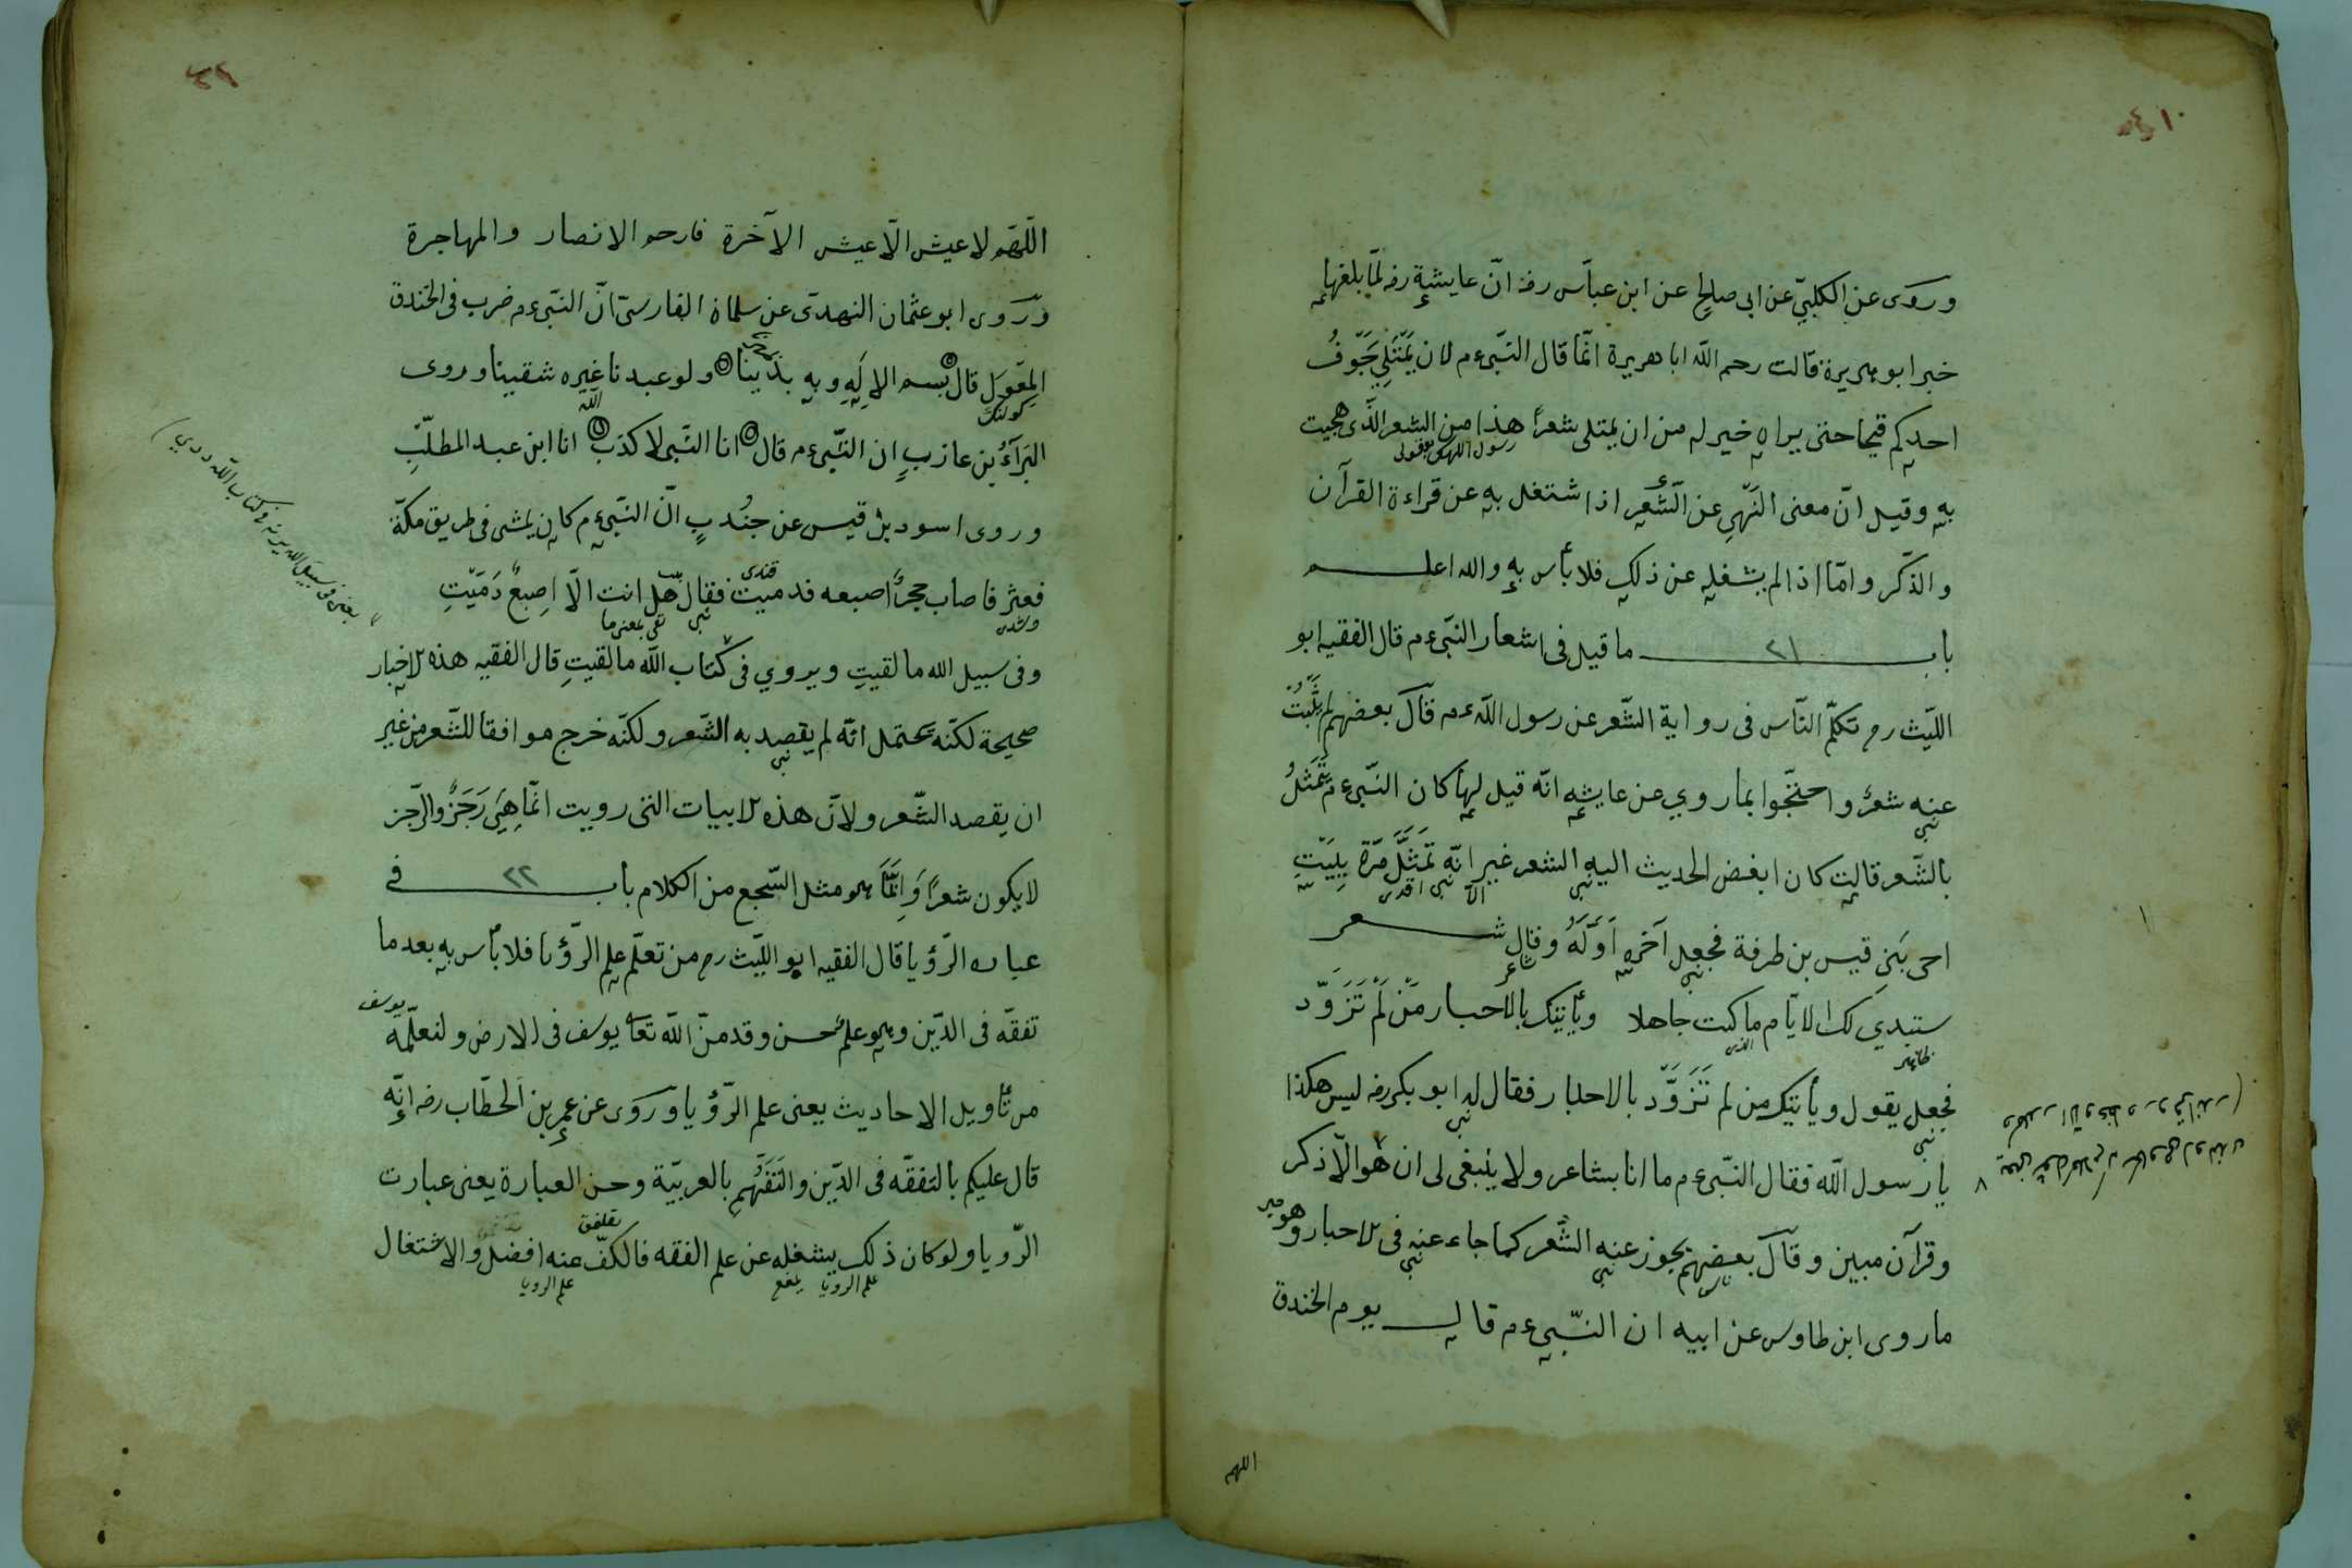 وروى عن الكلبيّ عن ابى صالح عن ابن عباس رضه انّ عايشة رضه لمّا بلغها
خبر ابو هريرة قالت رحم الله ابا هريرة انّما قال النبّى ءم لان يمتلى جوف
احدكم قيحا حتى يراه خير له من ان يمتلى شعرا هذا من الشعر الذى هجيت
رسول الله
به وقيل انّ معنى النّهى عن الشّعر اذا اشتغل به عن قراءة القرآن
والذّكر وامّا اذا لم يشغله عن ذلك فلا بأس به والله اعلم
باب ٢١ ما قيل فى اشعار النبّى ءم قال الفقيه ابو
الليّث رح تكلّم النّاس فى رواية الشّعر عن رسول الله ءم قال بعضهم لم يثبت
عنه شعر واحتجّوا بما روي عن عايشه انّه قيل لها كان النبّى ءم يتمثل
بالشّعر قالت كان ابغض الحديث اليه الشعر غير انّه تمثّل مرّة ببيت
احى بنى قيس بن طرفة فجعل آخره اوّله وقال شعر
ستبدي لك الايّام ما كنت جاهلا ويأتيك بالاخبار من لم تزوّد
فجعل يقول ويأتيك من لم تزوّد بالاخبار فقال له ابو بكر رضه ليس هكذا
يا رسول الله فقال النبّى ءم ما انا بشاعر ولا ينبغى لى ان هو الّا ذكر
وقرآن مبين وقال بعضهم يجوز عنه الشّعر كما جاء عنه فى الاخبار وهو
ما روى ابن طاوس عن ابيه ان النبّى ءم قال يوم الخندق
اللهم
اللّهم لا عيش الّا عيش الآخرة فارحم الانصار والمهاجرة
وروى ابو عثمان النهدى عن سلمان الفارسىّ انّ النبّى ءم ضرب فى الخندق
المعول قال بسم الاله وبه بدينا ولو عبدنا غيره شقينا وروى
كولنك الله
البرآء بن عازب ان النبّى ءم قال انا النبّى لا كذب انا ابن عبد المطلّب
وروى اسود بن قيس عن جندب انّ النبّى ءم كان يمشى فى طريق مكّة
فعثر فاصاب حجر اصبعه فدميت فقال هل انت الّا اصبع دميت
نبى نفى بمعنى ما
وفى سبيل الله ما لقيت ويروي فى كتاب الله ما لقيت قال الفقيه هذه الاخبار
صحيحة لكنّه يحتمل انّه لم يقصد به الشّعر ولكنّه خرج موافقا للشّعر من غير
ان يقصد الشّعر ولانّ هذه الابيات التى رويت انّما هى رجز والرّجز
لا يكون شعرا وانّما هو مثل السّجع من الكلام باب ٢٢ فى
عباره الرّؤيا قال الفقيه ابو الليّث رح من تعلّم علم الرّؤيا فلا بأس به بعد ما
تفقّه فى الدّين وهو علم حسن وقد منّ الله تعا يوسف فى الارض ولنعلّمه
يوسف
من تأويل الاحاديث يعنى علم الرّؤيا وروى عن عمر بن الخطّاب رضه انّه
قال عليكم بالتفقّه فى الدّين والتفهّم بالعربيّة وحسن العبارة يعنى عبارت
الرّويا ولو كان ذلك يشغله عن علم الفقه فالكفّ عنه افضل والاشتغال
علم الرويا علم الرويا